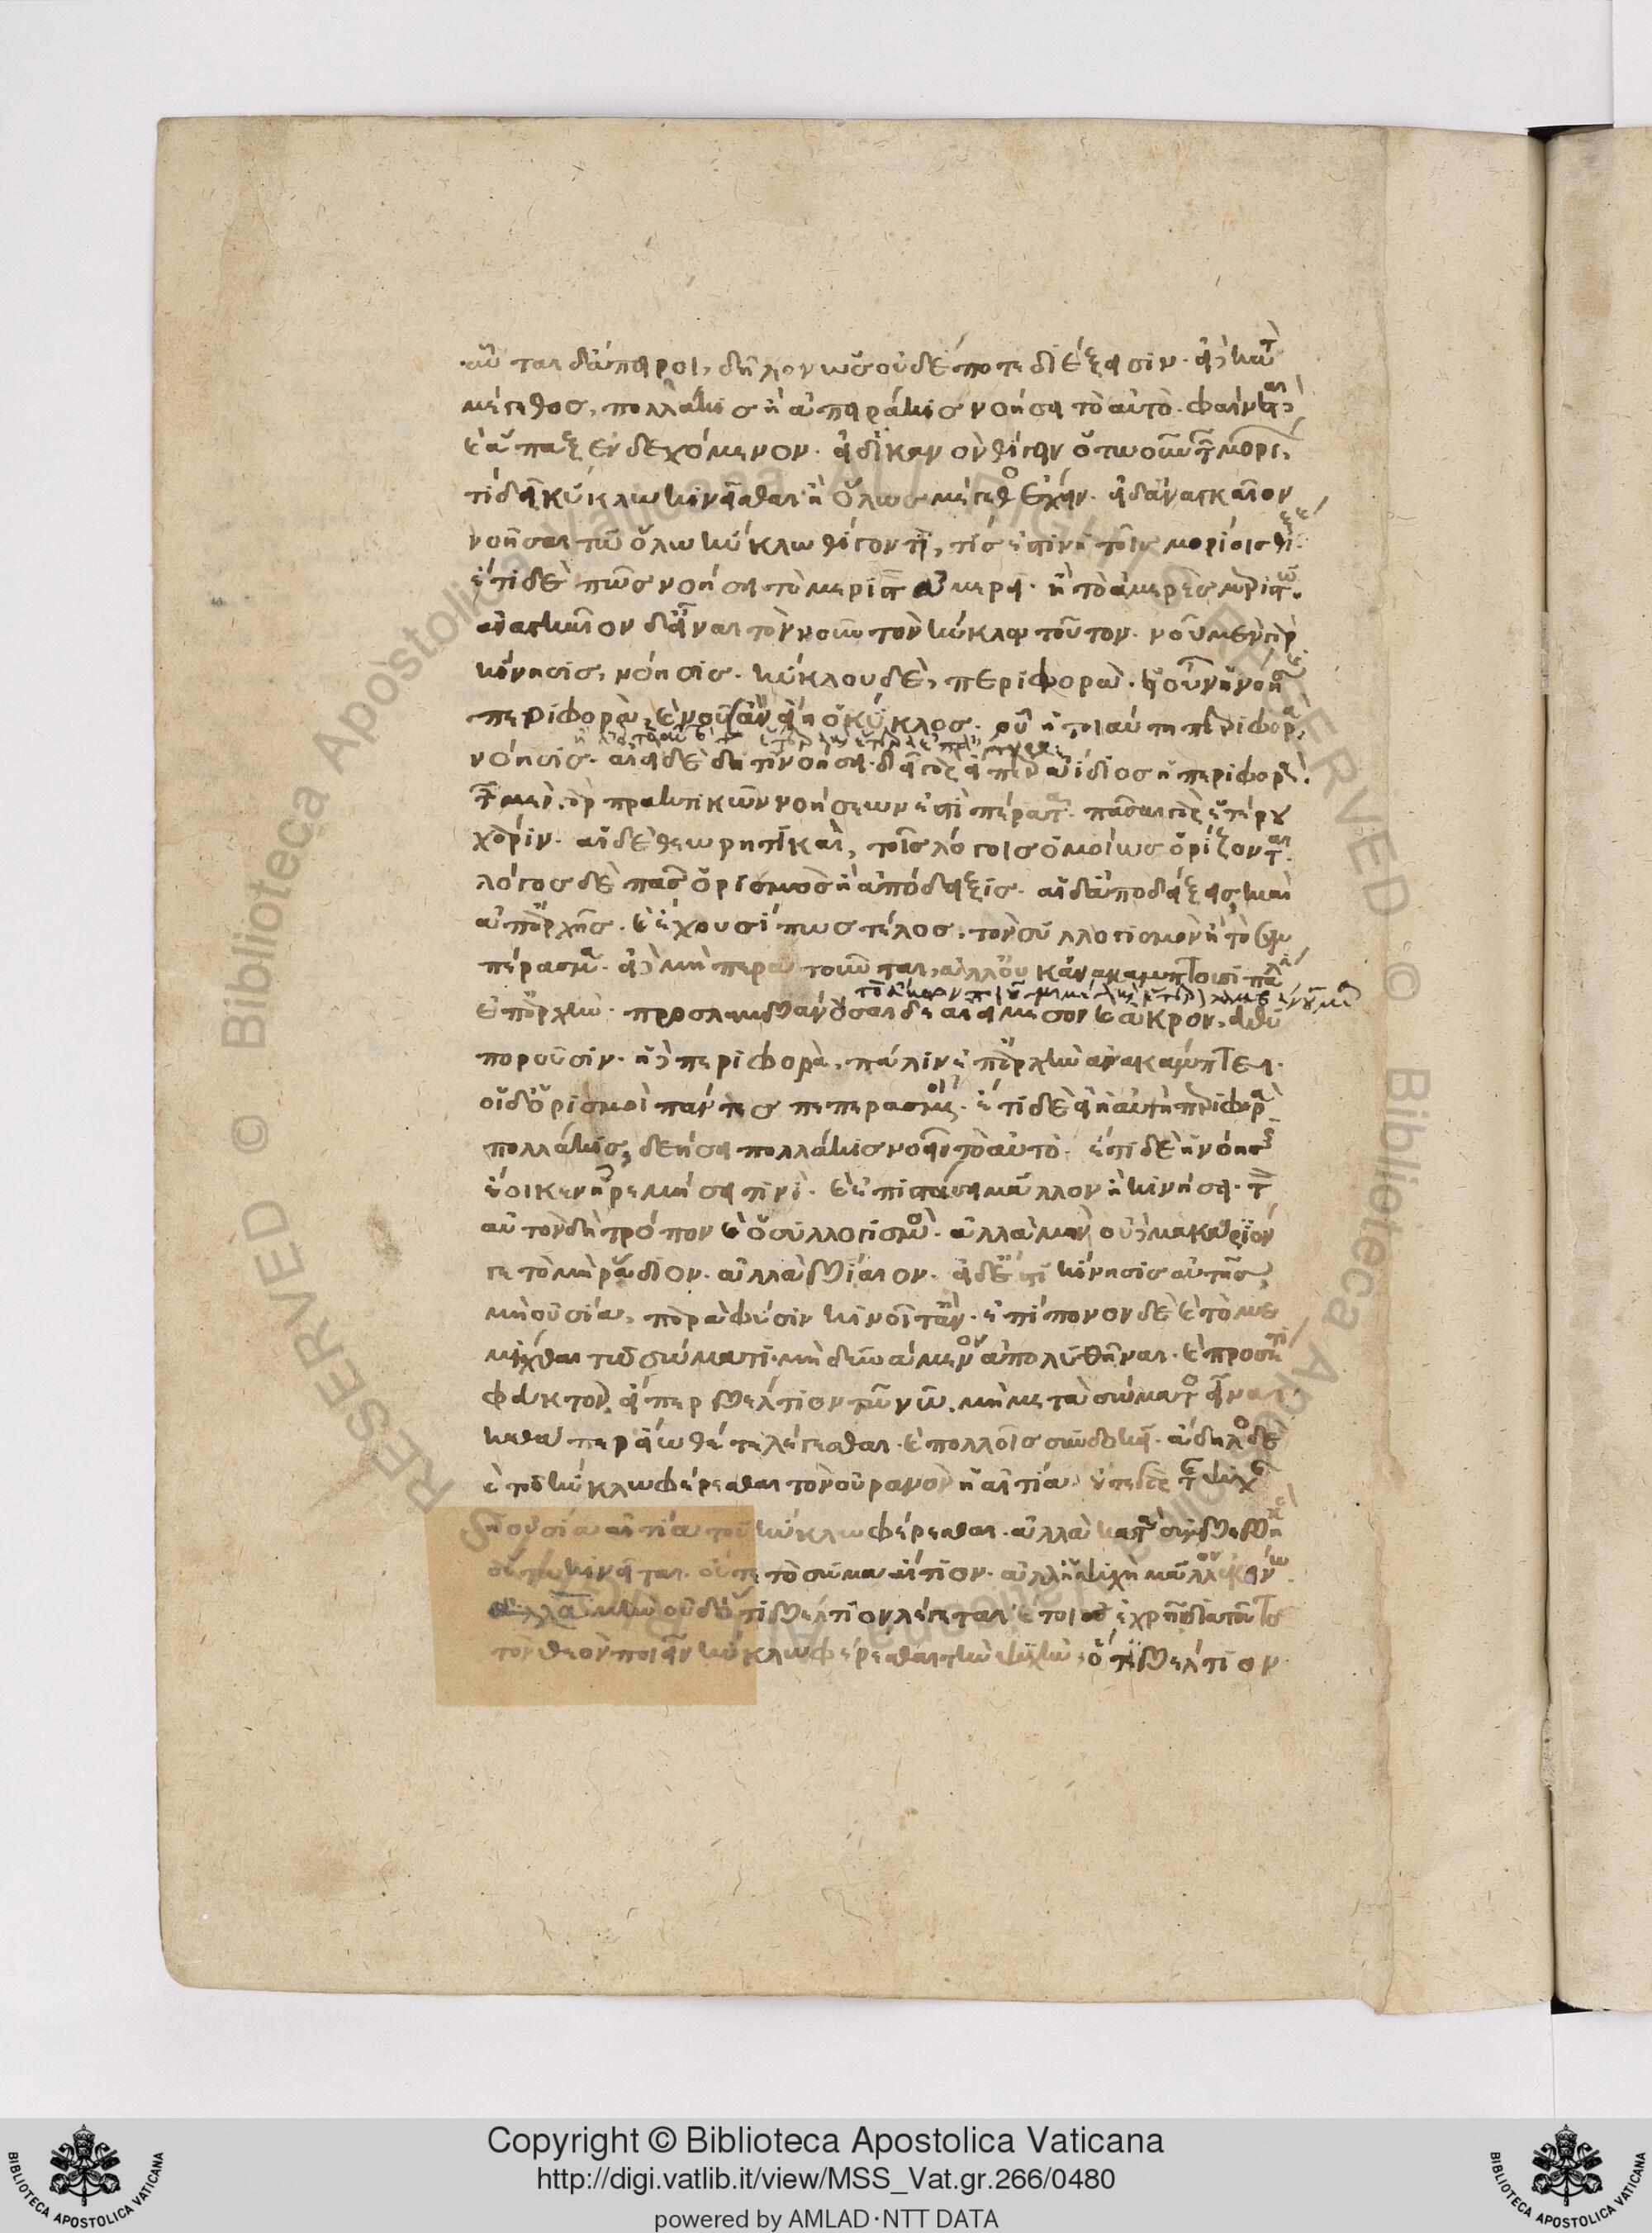 αὗται δ' ἄπειροι, δῆλον ὡς οὐδέποτε διέξεισιν· εἰ δὲ κατὰ
μέγεθος, πολλάκις ἢ ἀπειράκις νοήσει τὸ αὐτό· φαίνεται δὲ
καὶ ἅπαξ ἐνδεχόμενον· εἰ δ' ἱκανὸν θίγειν ὁτωοῦν τῶν μορίων,
τί δεῖ κύκλω κινεῖσθαι ἢ ὅλως μέγεθος ἔχειν· εἰ δ' ἀναγκαῖον
νοῆσαι τῶ ὅλω κύκλω θίγοντι, τίς ἐστιν ἡ τοῖς μορίοις θίξις·
ἔτι δὲ πῶς νοήσει τὸ μεριστὸν ἀμερεῖ· ἢ τὸ ἀμερὲς μεριστῶ·
ἀναγκαῖον δ' εἶναι τὸν νοῦν τὸν κύκλον τοῦτον· νοῦ μὲν γὰρ
κίνησις, νόησις· κύκλου δὲ, περιφορά· εἰ οὖν ἡ νόησις
περιφορὰ, καὶ νοῦς ἂν εἴη ὁ κύκλος· οὗ ἡ τοιαύτη περιφορὰ
νόησις· ἀεὶ δὲ δὴ τί νοήσει· δεῖ γὰρ εἴπερ ἀίδιος ἡ περιφορά·
τῶν μὲν γὰρ πρακτικῶν νοήσεων ἐστὶ πέρατα· πᾶσαι γὰρ ἑτέρου
χάριν· αἱ δὲ θεωρητικαὶ, τοῖς λόγοις ὁμοίως ὁρίζονται·
λόγος δὲ πᾶς ὁρισμὸς ἢ ἀπόδειξις· αἱ δ' ἀποδείξεις, καὶ
ἀπ' ἀρχῆς· καὶ ἔχουσί πως τέλος, τὸν συλλογισμὸν ἢ τὸ συμ
πέρασμα· εἰ δὲ μὴ περατοῦνται, ἀλλ' οὐκ ἀνακάμπτουσι πάλιν
ἐπ' ἀρχήν· προσλαμβάνουσαι δὲ ἀεὶ μέσον καὶ ἄκρον, εὐθυ
ποροῦσιν· ἡ δὲ περιφορὰ, πάλιν ἐπ' ἀρχὴν ἀνακάμπτει·
οἱ δ' ὁρισμοὶ πάντες πεπερασμένοι· ἔτι δὲ εἰ ἡ αὐτὴ περιφορὰ
πολλάκις, δεήσει πολλάκις νοεῖν τὸ αὐτό· ἔτι δὲ ἡ νόησις
ἔοικεν ἠρεμήσει τινὶ· καὶ ἐπιστάσει μᾶλλον ἢ κινήσει· τὸν
αὐτὸν δὴ τρόπον καὶ ὁ συλλογισμός· ἀλλὰ μὴν οὐδὲ μακάριόν
γε τὸ μὴ ῥάδιον· ἀλλὰ βίαιον· εἰ δέ ἐστι κίνησις αὐτῆς
μὴ οὐσία, παρὰ φύσιν κινοῖτ' ἄν· ἐπίπονον δὲ καὶ τὸ με
μίχθαι τῶ σώματι· μὴ δυνάμενον ἀπολυθῆναι· καὶ προσέτι
φευκτόν, εἴπερ βέλτιον τῶ νῶ, μὴ μετὰ σώματος εἶναι·
καθάπερ εἴωθέ τε λέγεσθαι· καὶ πολλοῖς συνδοκεῖ· ἄδηλος δὲ
καὶ τοῦ κύκλω φέρεσθαι τὸν οὐρανὸν ἡ αἰτία· οὔτε γὰρ τῆς ψυχῆς
ἡ οὐσία αἰτία τοῦ κύκλω φέρεσθαι· ἀλλὰ κατὰ συμβεβηκὸς
οὕτω κινεῖται· οὔτε τὸ σῶμα αἴτιον· ἀλλ' ἡ ψυχὴ μᾶλλον ἐκείνω·
ἀλλὰ μὴν οὐδ' ὅτι βέλτιον λέγεται· καίτοι γε ἐχρῆν διὰ τοῦτο
τὸν θεὸν ποιεῖν κύκλω φέρεσθαι τὴν ψυχὴν, ὅτι βέλτιον
Copyright © Biblioteca Apostolica Vaticana
http://digi.vatlib.it/view/MSS_Vat.gr.266/0480
powered by AMLAD·NTT DATA